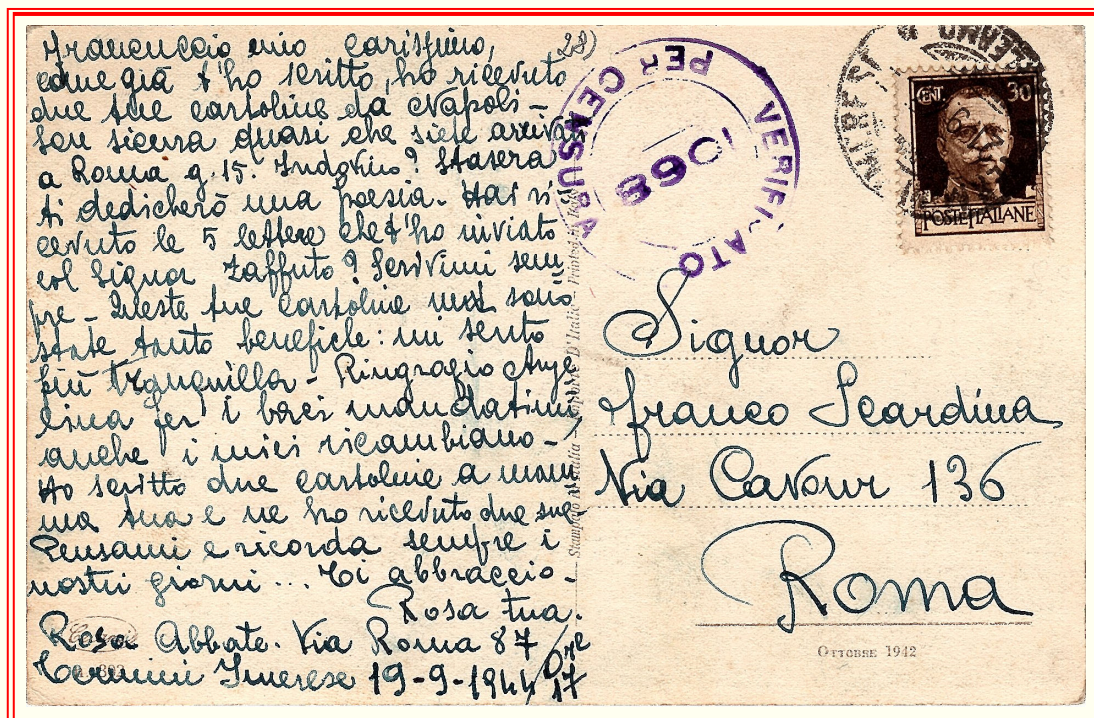 Francuccio mio carissimo, 28)
come già t'ho scritto, ho ricevuto
due tue cartoline da Napoli-
Son sicura quasi che siete arriva
a Roma g. 15. Indovino? Stasera
ti dedicherò una poesia. Hai ri
cevuto le 5 lettere che t'ho inviato
col Signor Zaffuto? Scrivimi sem
pre- Queste tue cartoline mi sono
state tanto benefiche: mi sento
più tranquilla- Ringrazio Ange
lina per i baci mandatimi
anche i miei ricambiano-
Ho scritto due cartoline a mam
ma tua e ne ho ricevuto due sue
Pensami e ricorda sempre i
nostri giorni... Ti abbraccio-
Rosa tua.
Rosa Abbate. Via Roma 87
Termini Imerese 19-9-1944 Ore 17
VERIFICATO PER CENSURA
1068
CENT 30
POSTE ITALIANE
Signor
Franco Scardina
Via Cavour 136
Roma
OTTOBRE 1942